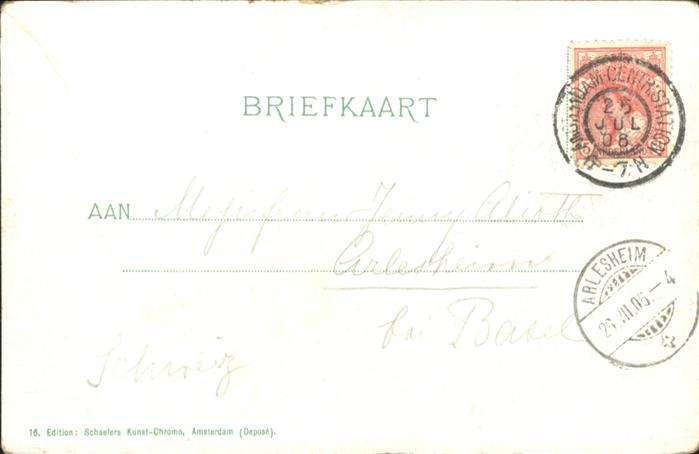 BRIEFKAART
AMSTERDAM CENTR. STATION
25
JUL
06
6-7 N
AAN Jenny
Arlesheim
bei Basel
Schweiz
ARLESHEIM
26.VII.06.-4
16. Edition: Schaefers Kunst-Chromo, Amsterdam (Deposé).